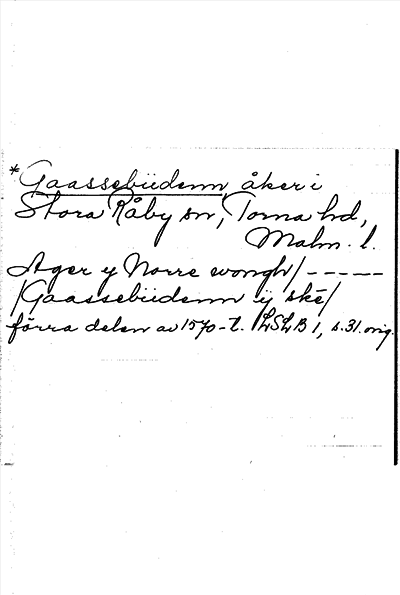 *Gaassebiidenn, åker i
Stora Råby sn, Torna hd,
Malm. l.
Ager y Norre wongh/-----
/Gaassebiidenn ÿ skē/
förra delen av 1570-t. LSLB 1, s.31.orig.